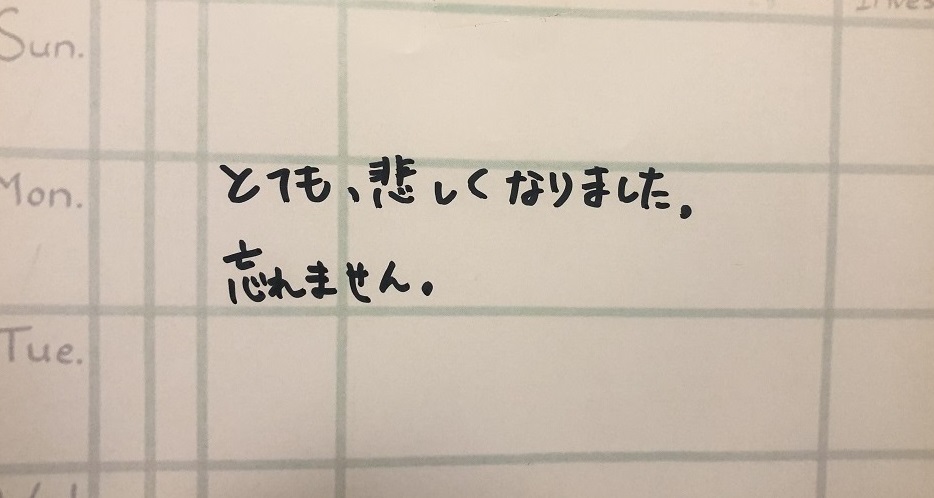 Sun.
Mon.
とても、悲しくなりました。
忘れません。
Tue.